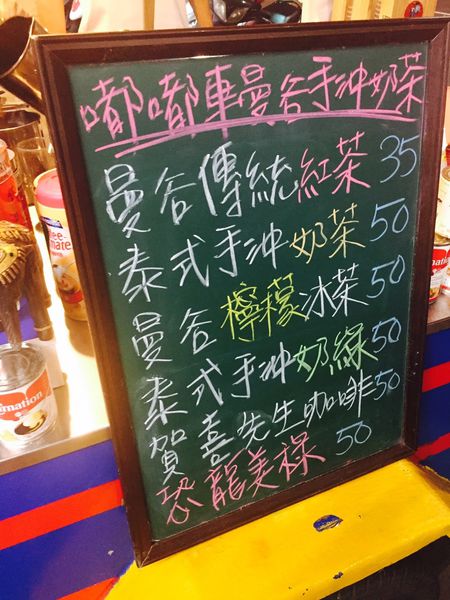 嘟嘟車曼谷手沖奶茶
曼谷傳統紅茶 35
泰式手沖奶茶 50
曼谷檸檬冰茶 50
泰式手沖奶綠 50
賀喜先生咖啡 50
恐龍美祿 50
mate
mation
nation